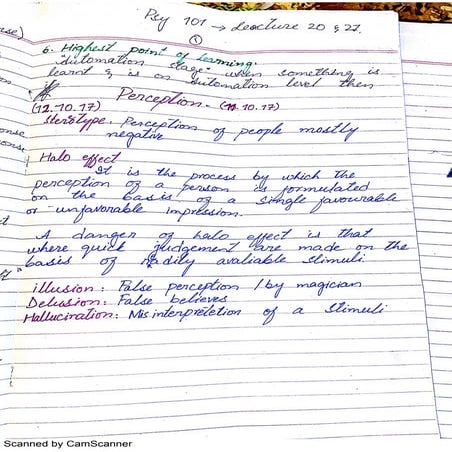 Psy 101 → Leacture 20 & 27.
1
6. Highest point of learning.
"Automation stage" when something is
learnt & is on automation level then
Perception.
(12.10.17) (19.10.17)
Sterotype: Perception of people mostly
negative
Halo effect
It is the process by which the
perception of a person is formulated
on the basis of a single favourable
or unfavorable impression.
A danger of halo effect is that
where quick judgement are made on the
basis of radily avaliable stimuli
illusion: False perception / by magician
Delusion: False believes
Hallucination: Misinterpretetion of a stimuli
Scanned by CamScanner